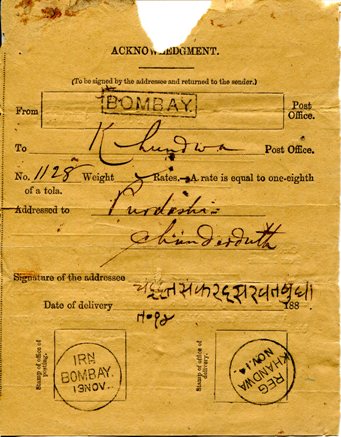 ACKNOWLEDGMENT.
(To be signed by the addressee and returned to the sender.)
From BOMBAY. Post Office.
To Khundwa Post Office.
No. 1128 Weight Rates. A rate is equal to one-eighth
of a tola.
Addressed to Purdoshi
Chunderduth
Signature of the addressee
Date of delivery 188
Stamp of office of posting.
IRN
BOMBAY.
19 NOV
Stamp of office of delivery.
REG
KHANDWA
NOV.